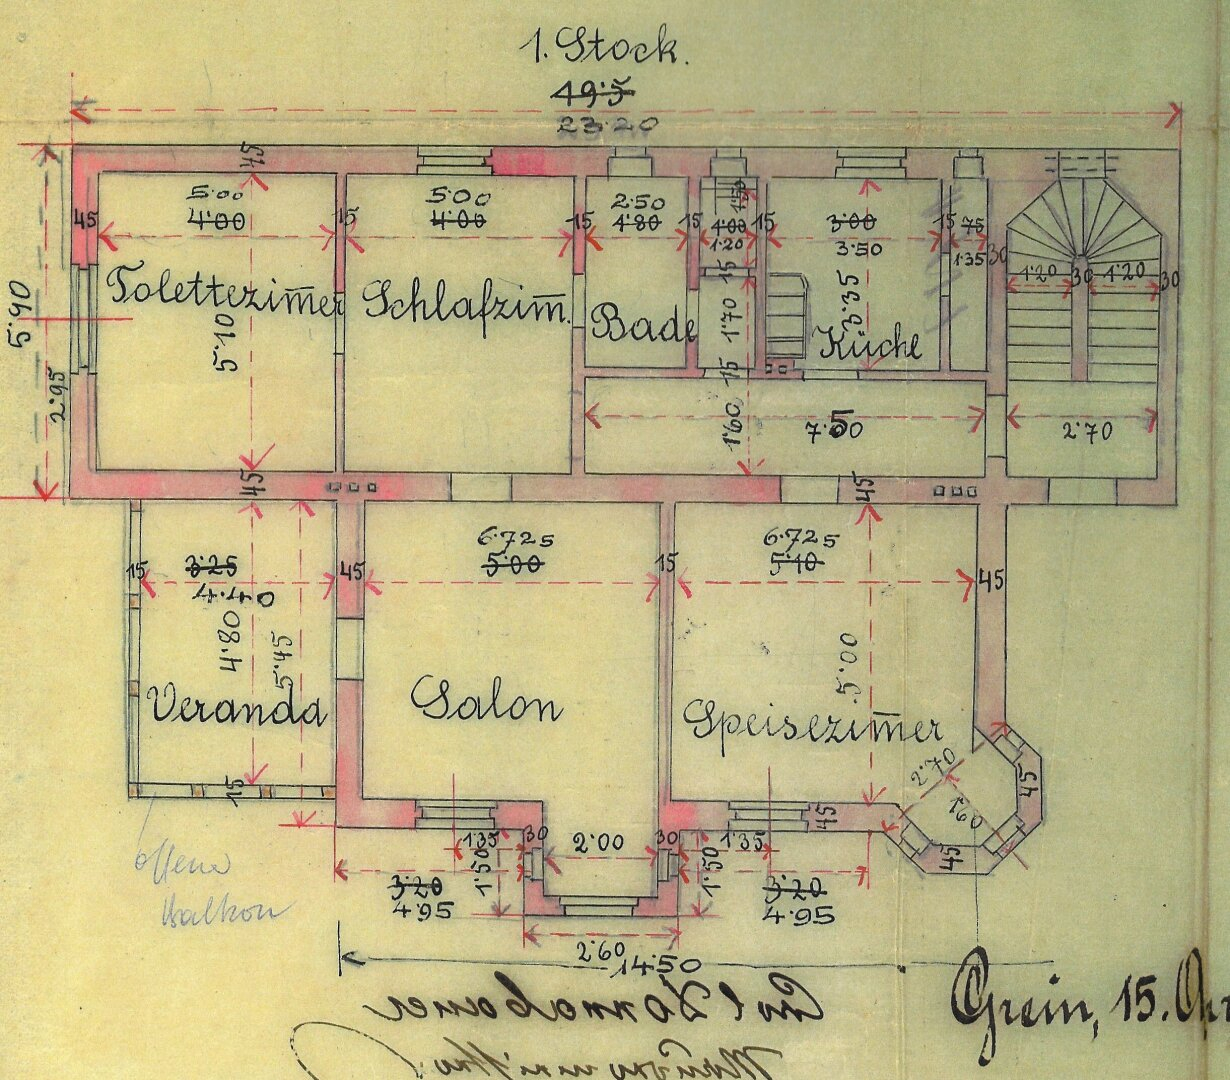 1. Stock.
49·5
23·20
45
5·00
4·00
15
5·00
4·00
15
2·50
4·80
15
1·50
4·00
1·20
15
3·00
3·50
15
75
1·35
30
1·20
30
1·20
30
45
5·90
2·95
Tolettezim̅er
5·10
Schlafzim̅.
Bade
15
1·70
15
3·35
Küche
1·60
7·50
2·70
45
45
15
3·25
4·40
45
6·725
5·00
15
6·725
5·10
45
4·80
5·45
5·00
Veranda
Salon
Speisezim̅er
2·70
1·60
45
45
45
15
1·35
30
2·00
30
1·35
1·50
1·50
3·20
4·95
3·20
4·95
2·60
14·50
offene
Balkon
Grein, 15.